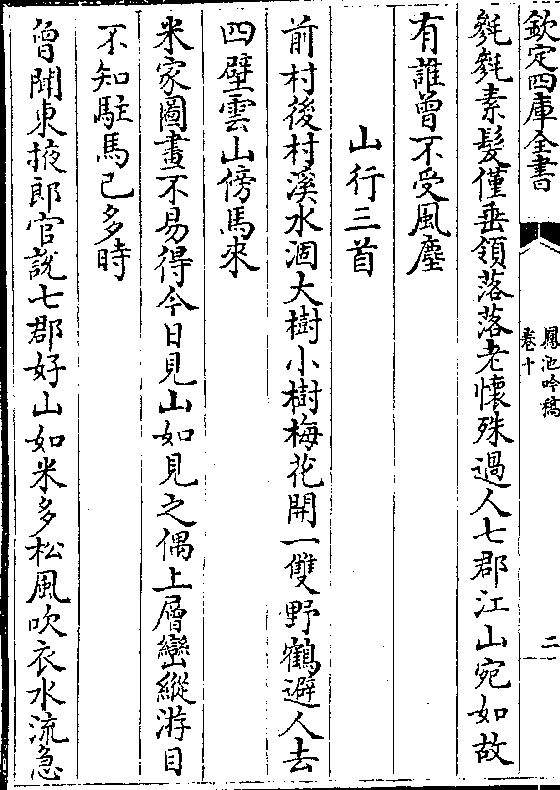 欽定四庫全書
鳳池吟稿
卷十
二
毿毿素髮僅垂領落落老懷殊過人七郡江山宛如故
有誰曾不受風塵
山行三首
前村後村溪水涸大樹小樹梅花開一雙野鶴避人去
四壁雲山傍馬來
米家圖畫不易得今日見山如見之偶上層巒縱游目
不知駐馬已多時
曾聞東掖郎官說七郡好山如米多松風吹衣水流急